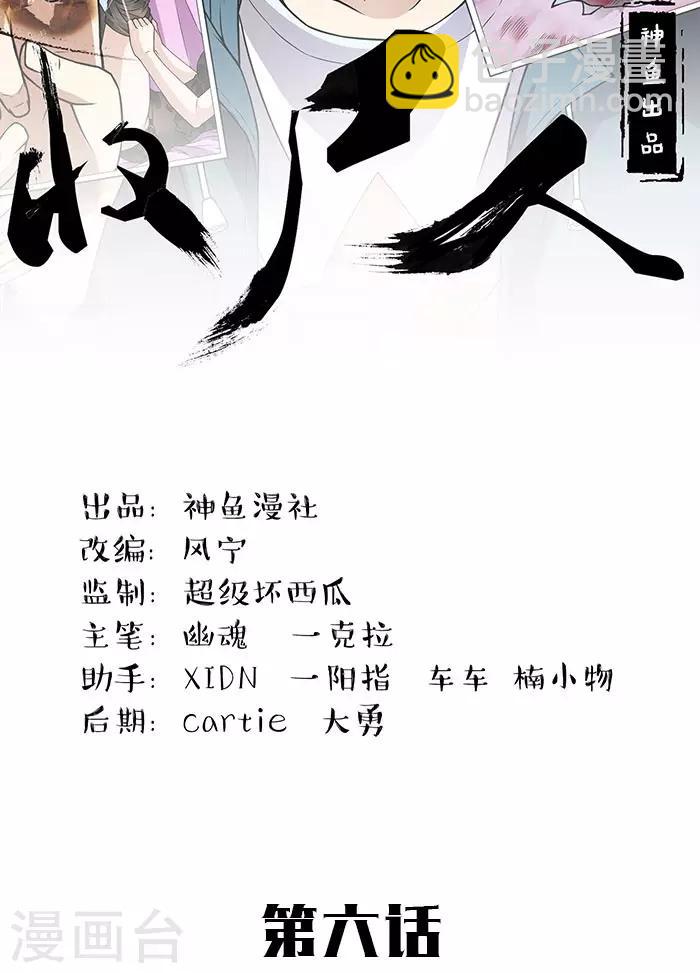 神鱼出品
包子漫畫
baozimh.com
收尸人
出品: 神鱼漫社
改编: 风宁
监制: 超级坏西瓜
主笔: 幽魂 一克拉
助手: XIDN 一阳指 车车 楠小物
后期: cartie 大勇
漫画台
第六话